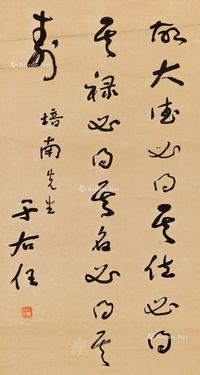 故大德必得其位必得
其禄必得其名必得其
寿
培南先生
于右任